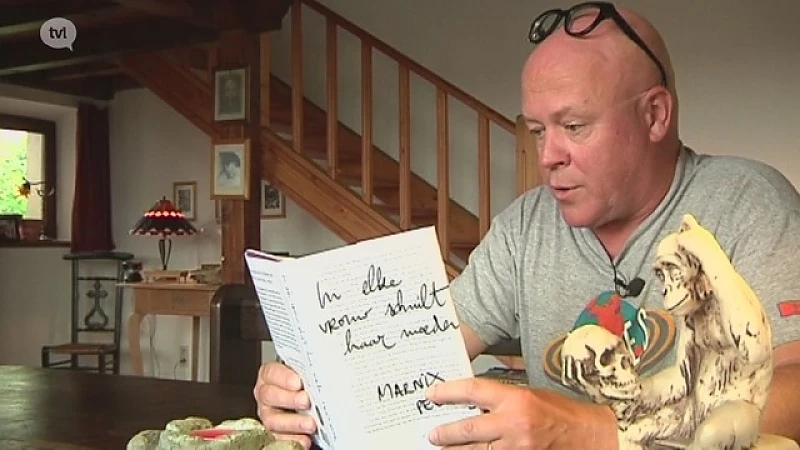 tvl
In elke
vrouw schuilt
haar moeder
MARNIX
PE